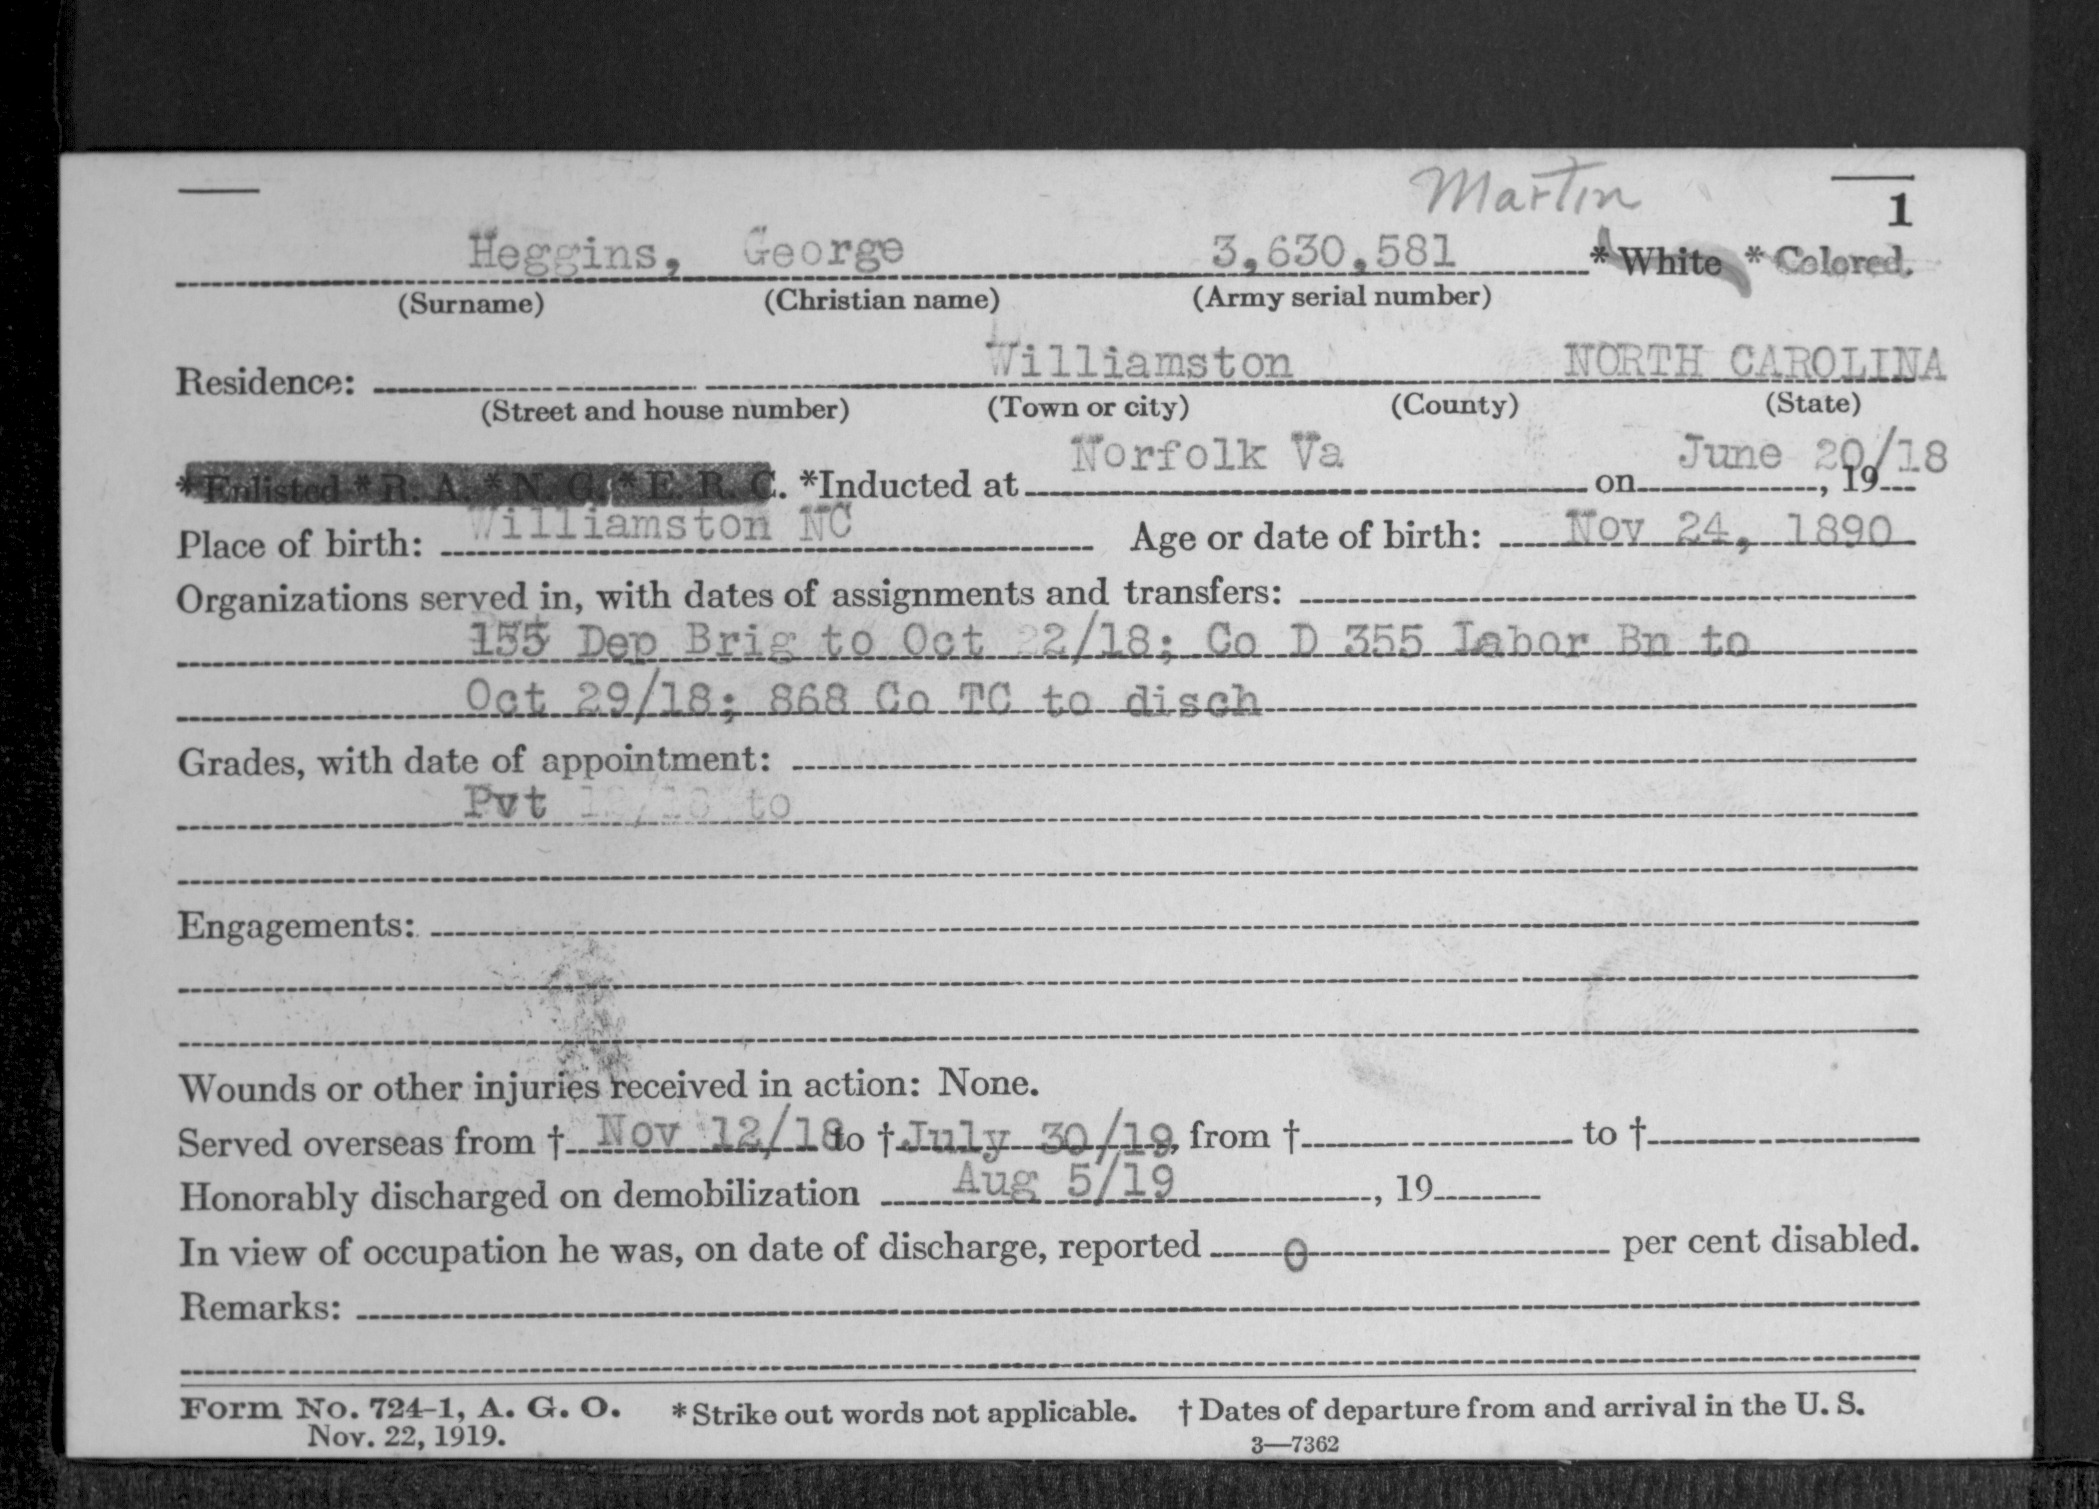 Martin
1
Heggins, George 3,630,581 * White * Colored.
(Surname) (Christian name) (Army serial number)
Williamston NORTH CAROLINA
Residence:
(Street and house number) (Town or city) (County) (State)
Norfolk Va June 20/18
*Enlisted *R. A. *N. G. *E. R. C. *Inducted at on , 19
Williamston NC
Place of birth: Age or date of birth: Nov 24, 1890
Organizations served in, with dates of assignments and transfers:
155 Dep Brig to Oct 22/18; Co D 355 Labor Bn to
Oct 29/18; 868 Co TC to disch
Grades, with date of appointment:
Pvt to
Engagements:
Wounds or other injuries received in action: None.
Served overseas from † Nov 12/18 to † July 30/19, from † to †
Honorably discharged on demobilization Aug 5/19 , 19
In view of occupation he was, on date of discharge, reported 0 per cent disabled.
Remarks:
Form No. 724-1, A. G. O. *Strike out words not applicable. † Dates of departure from and arrival in the U. S.
Nov. 22, 1919. 3—7362